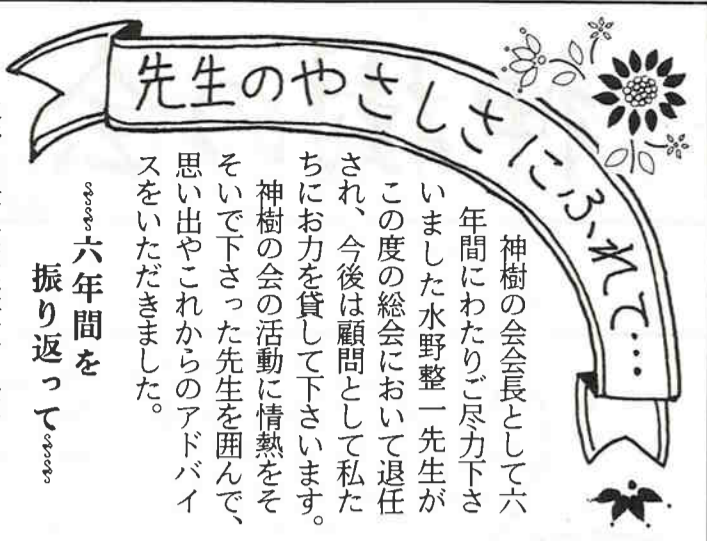 先生のやさしさにふれて…
神樹の会会長として六
年間にわたりご尽力下さ
いました水野整一先生が
この度の総会において退任
され、今後は顧問として私た
ちにお力を貸して下さいます。
神樹の会の活動に情熱をそ
そいで下さった先生を囲んで、
思い出やこれからのアドバイ
スをいただきました。
六年間を
振り返って